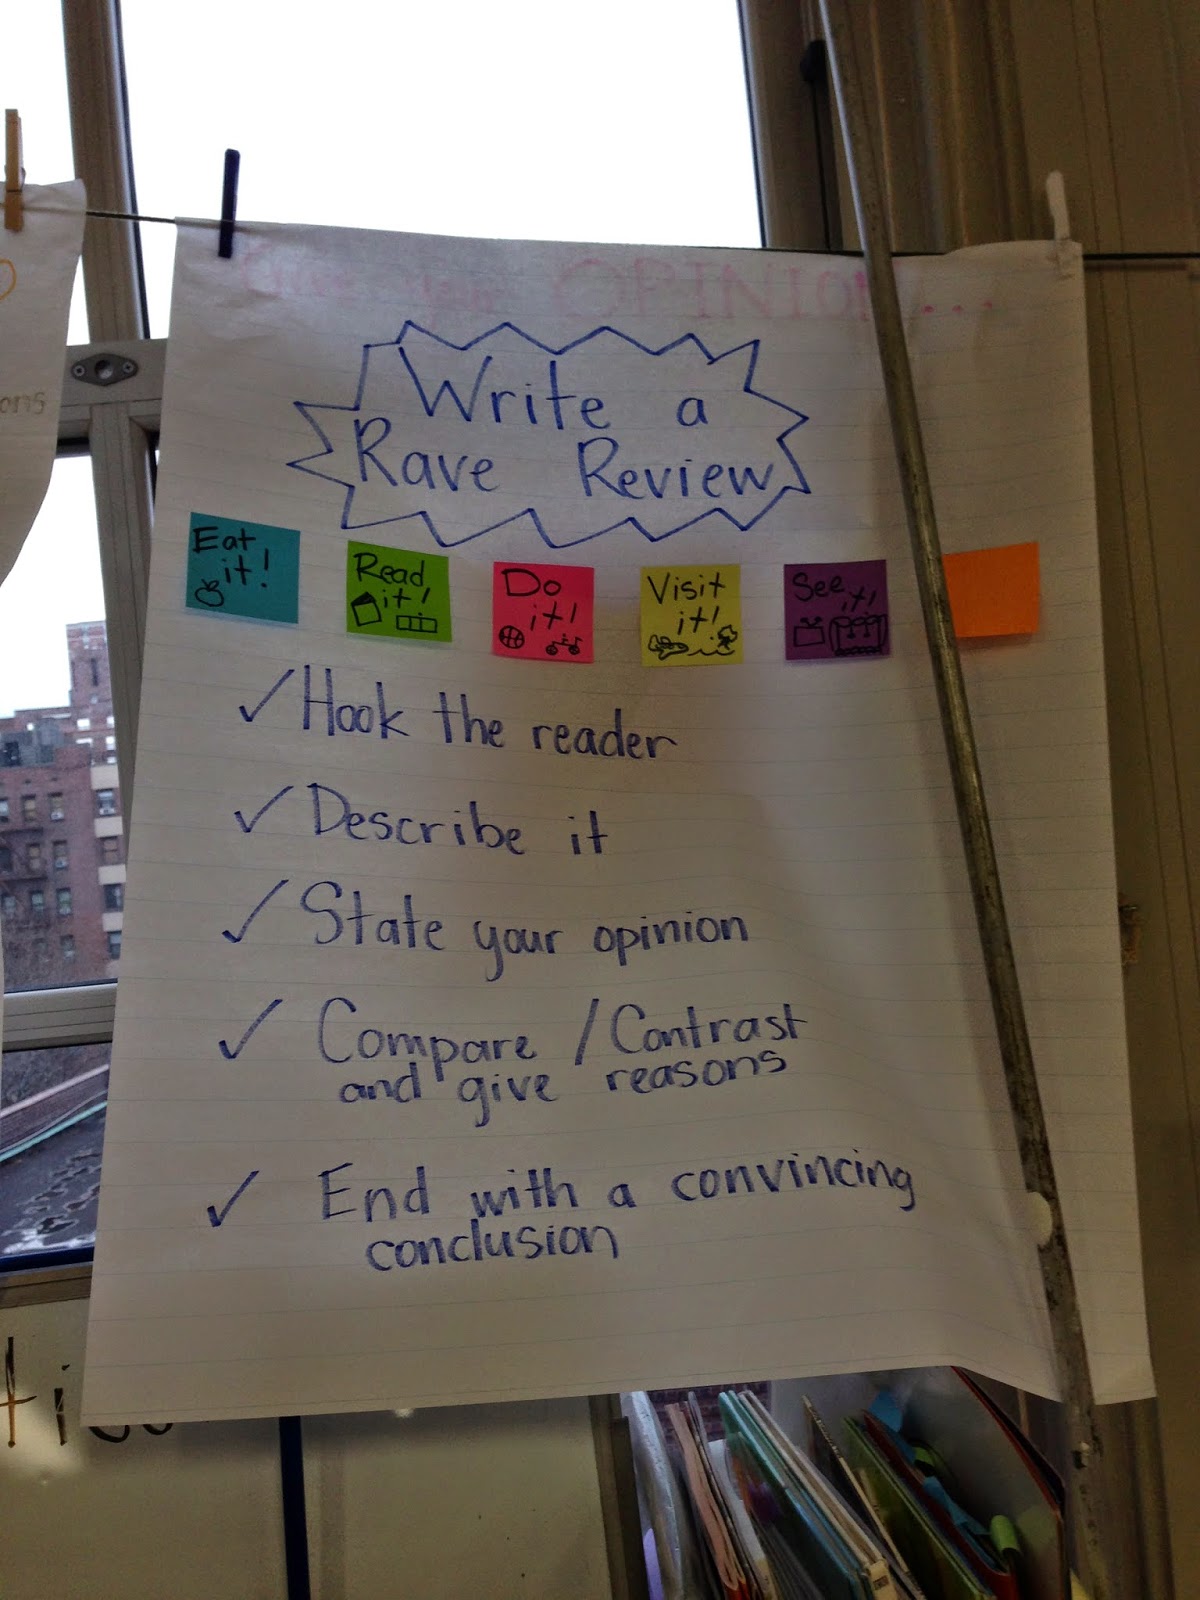 Give Your OPINION!...
Write a
Rave Review
Eat
it!
Read
it!
Do
it!
Visit
it!
See
it!
✓ Hook the reader
✓ Describe it
✓ State your opinion
✓ Compare / Contrast
and give reasons
✓ End with a convincing
conclusion
ons